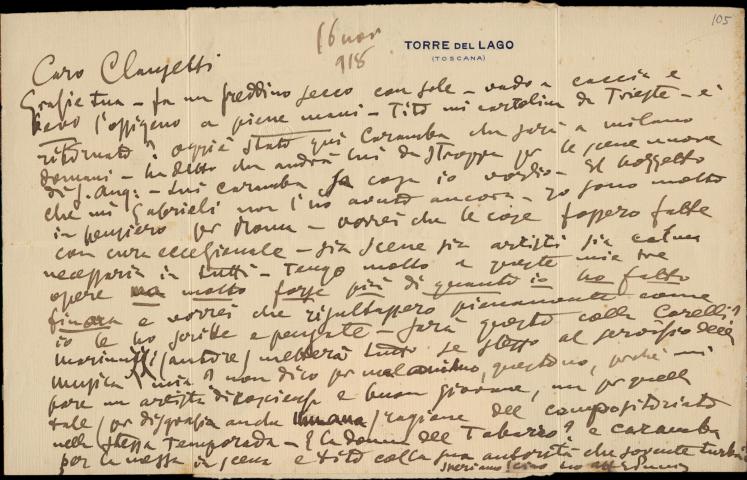 105
16 nov
918
TORRE DEL LAGO
(TOSCANA)
Caro Clausetti
Grazie tua – fa un freddino secco con sole – vado a caccia e
bevo l'ossigeno a piene mani – Tito mi cartolina da Trieste – è
ritornato? oggi è stato qui Caramba che sarà a milano
domani – ha detto che andrà lui da Stroppa per le scene nuove
di S. Ang: – Lui caramba sa cosa io voglio – Il bozzetto
che mi Gabrieli non l'ho avuto ancora – Io sono molto
in pensiero per Roma – vorrei che le cose fossero fatte
con cura eccezionale – sia scene sia artisti sia calma
necessaria in tutti – Tengo molto a queste mie tre
opere molto forse più di quanto io ho fatto
finora e vorrei che risultassero pienamente come
io le ho scritte e pensate – Sarà questo colla Carelli?
Marinuzzi (autore) metterà tutto se stesso al servizio della
musica mia? non dico per mal animo, questo no, perchè mi
pare un artista di coscienza e buon giovane, ma per quella
tale (per disgrazia anche umana) ragione del compositoriato
nella stessa temporada – E la donna del Tabarro? e caramba
per la messa in scena e tito colla sua autorità che sovente turba
speriamo! ciao